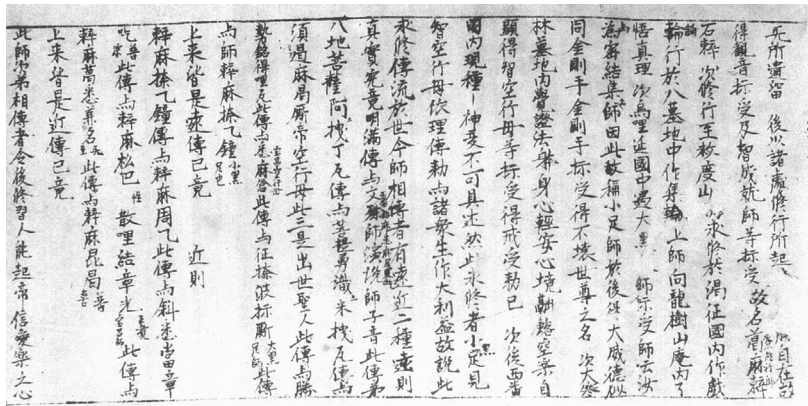 死所遺留　後以諸處修行所起
得觀音标受及智成就師等标受　故名葛麻辢
石辢　次修行至敉度山　次求修於渴征國內作戲
輪行於八墓地中作集輪　上師向龍樹山庵內了
悟真理　次烏哩延國中過大黑　師标受師云汝
為密結集師因此故稱小足師於後得大威德似
同金剛手金剛手标受得不壞世尊之名　次大寒
林墓地內覺證法身身心輕安心境融轄空樂自
顯得智空行母等标受得戒受勅已　次後西番
國內現種種神變不可具述然此求修者小黑足見
智空行母依理傳勅与諸眾生作大利益故說此
求修傳流於世今師相傳者有遠近二種遠則
真實究竟明滿傳与文殊師演說師子音此傳第
八地菩薩阿拽丁瓦傳与菩提勇識米拽瓦傳与
須遏麻曷齊帝空行母此三是出世聖人此傳与勝
勢銘得哩瓦此傳与悉麻答此傳与征搽波标斯大黑足師此傳
与師辢麻搽乁鐘小黑足也
上來皆是遠傳已竟　近則
辢麻搽乁鐘傳与辢麻周乁此傳与斜悉當章
吃　此傳与辢麻松巴　散哩結章光　此傳与
辢麻萬悉葬名　此傳与辢麻昆昌
上來皆是近傳已竟
此師弟相傳者令後修習人能起帝信愛樂之心